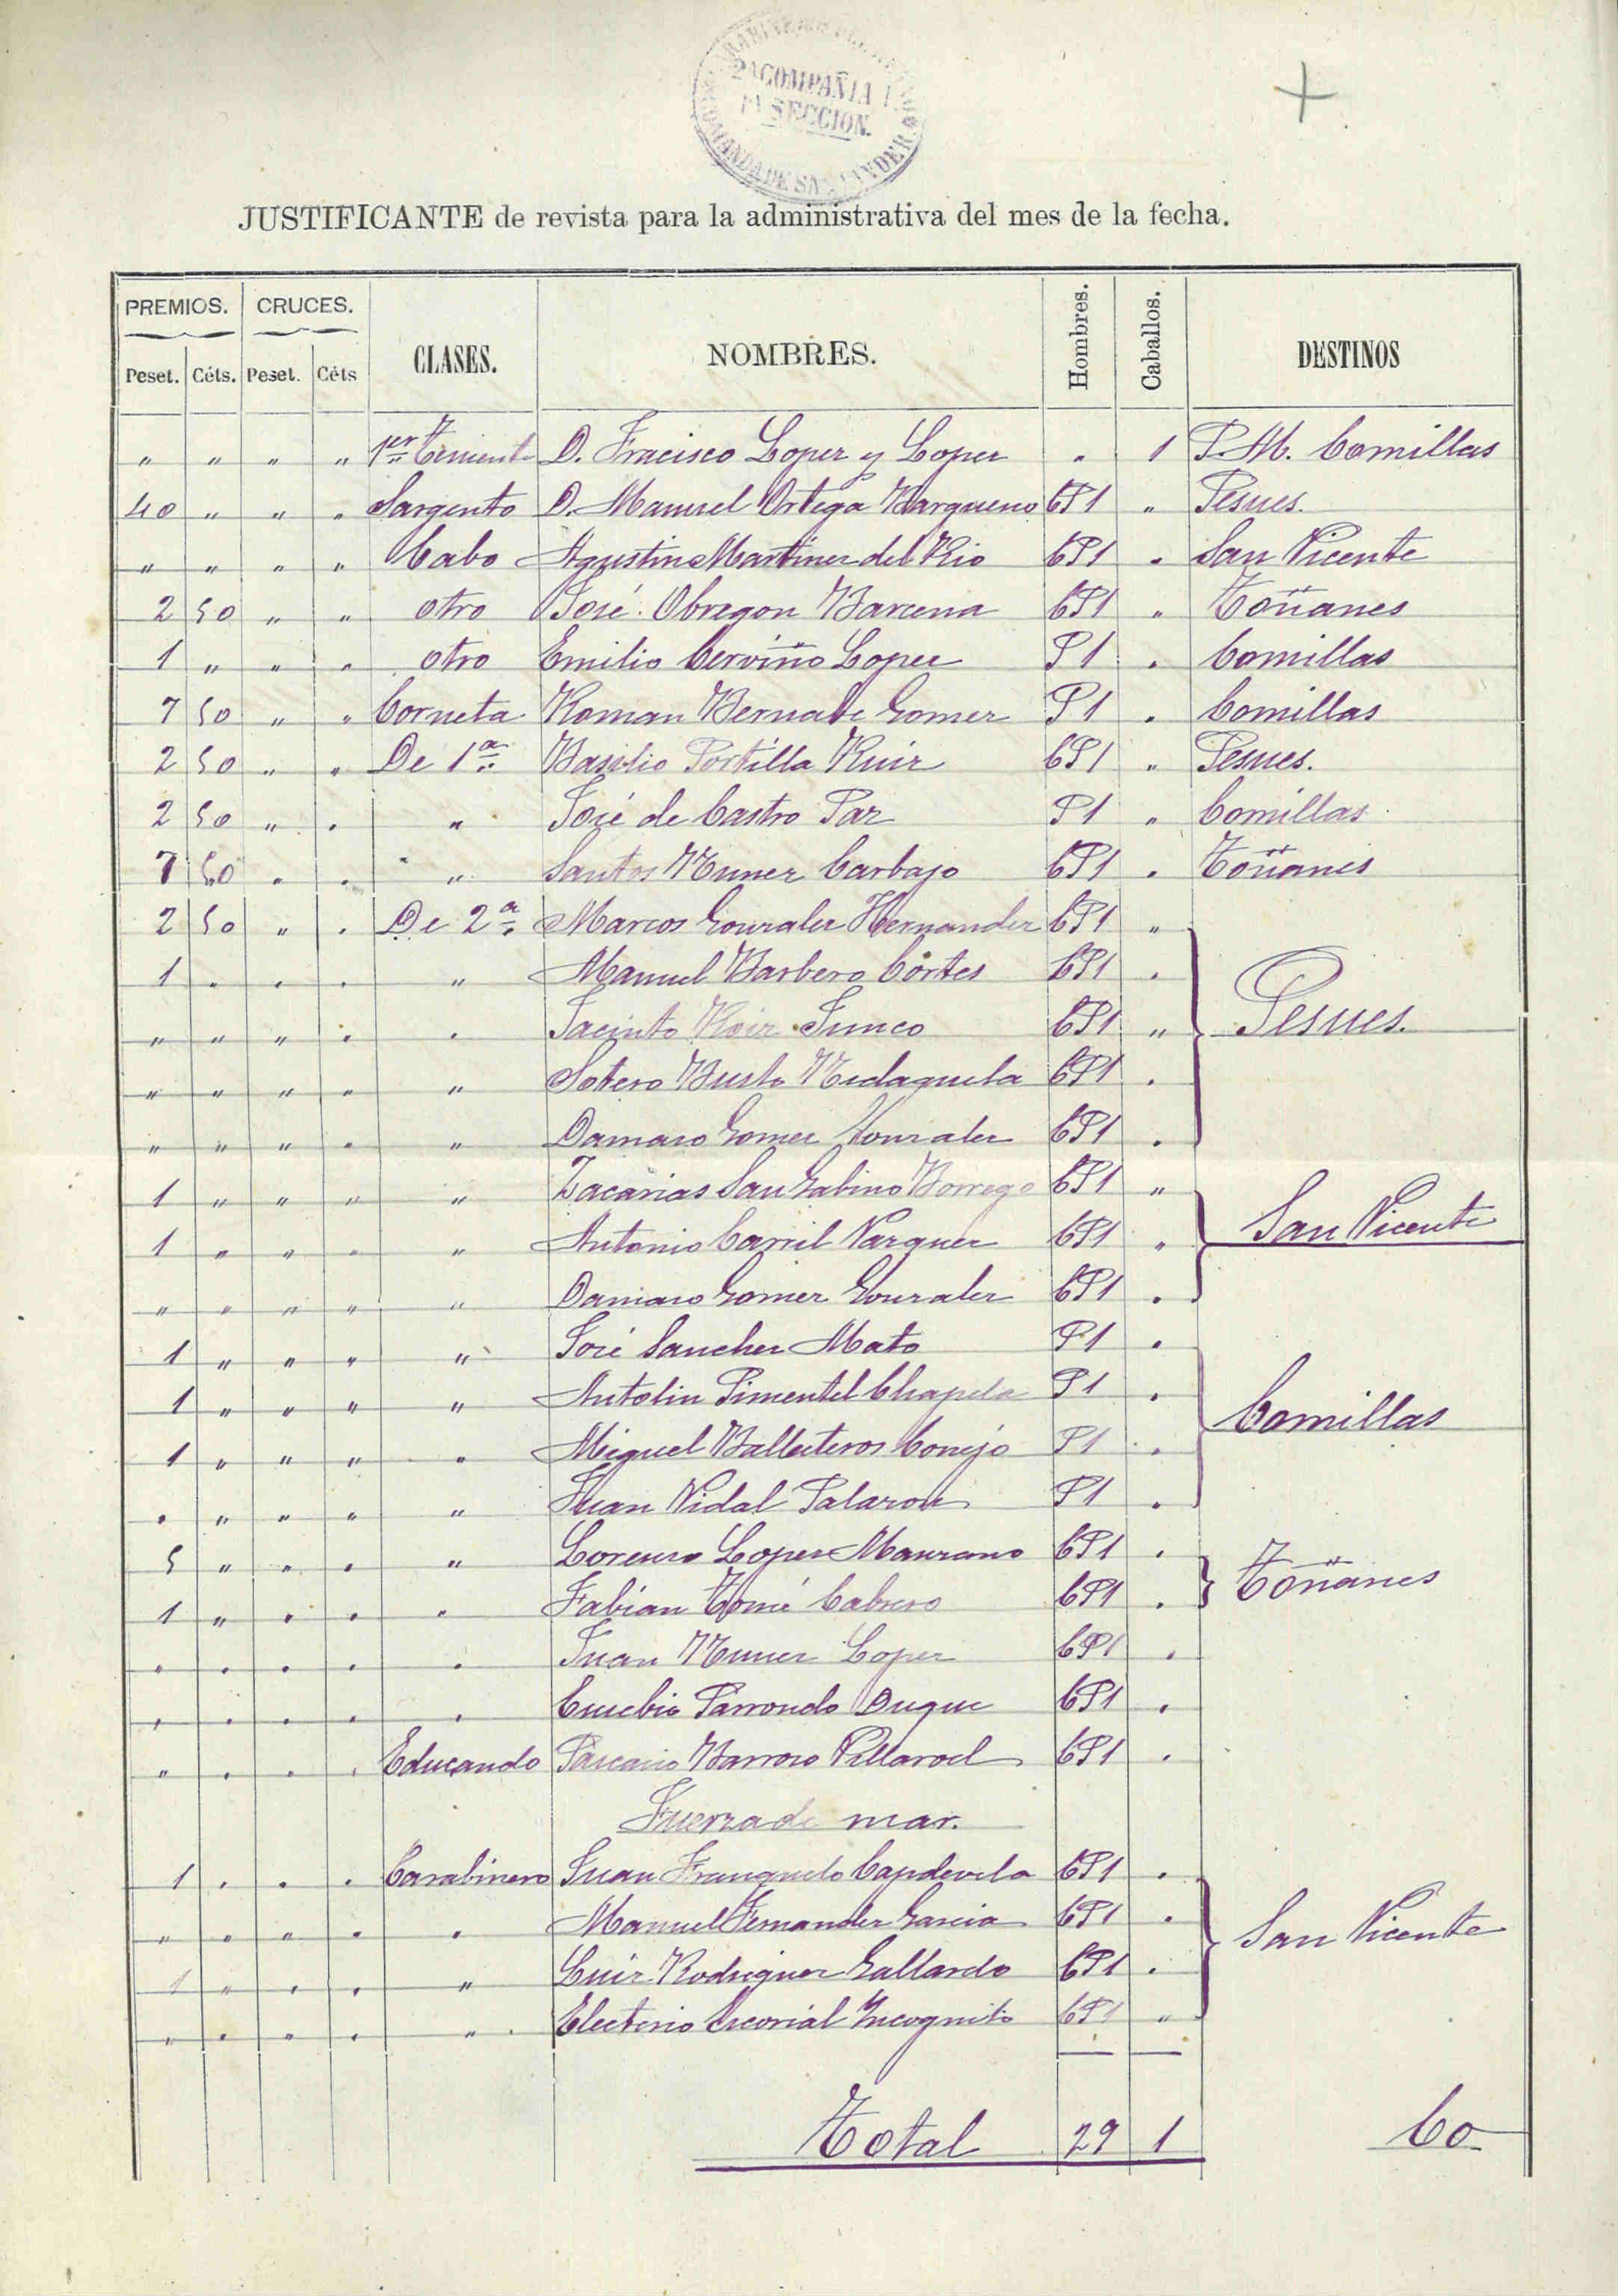 2ª COMPAÑIA
1ª SECCION.
COMANDA DE SANTANDER
JUSTIFICANTE de revista para la administrativa del mes de la fecha.
PREMIOS. CRUCES. CLASES. NOMBRES. Hombres. Caballos. DESTINOS
Peset. Céts. Peset. Céts
" " " " 1er Teniente D. Fracisco Lopez y Lopez " 1 P.M. Comillas
40 " " " Sargento D. Manuel Ortega Bargueno CP1 " Pesues.
" " " " Cabo Agustin Martinez del Rio CP1 " San Vicente
2 50 " " otro José Obregon Barcena CP1 " Toñanes
1 " " " otro Emilio Cerviño Lopez P1 " Comillas
7 50 " " Corneta Roman Bernabe Gomez P1 " Comillas
2 50 " " De 1ª Basilio Portilla Ruiz CP1 " Pesues.
2 50 " " " José de Castro Paz P1 " Comillas
7 50 " " " Santos Nunez Carbajo CP1 " Toñanes
2 50 " " De 2ª Marcos Gonzalez Hernandez CP1 "
1 " " " " Manuel Barbero Cortes CP1 "
" " " " " Jacinto Roiz Junco CP1 " Pesues.
" " " " " Sotero Busto CP1 "
" " " " " Damaso Gomez Gonzalez CP1 "
1 " " " " Zacarias San Gabino Borrego CP1 "
1 " " " " Antonio Carril Vazquez CP1 " San Vicente
" " " " " Damaso Gomez Gonzalez CP1 "
1 " " " " José Sanchez Mato P1 "
1 " " " " Antolin Pimentel Chapela P1 "
1 " " " " Miguel Ballesteros Conejo P1 " Comillas
" " " " " Juan Vidal Palazon P1 "
5 " " " " Lorenzo Lopez Manzano CP1 "
1 " " " " Fabian Tomé Cabrero CP1 " Toñanes
" " " " " Juan Nunez Lopez CP1 "
" " " " " Eusebio Parrondo Duque CP1 "
" " " " Educando Pascasio Barroso Villaroel CP1 "
Fuerza de mar.
1 " " " Carabinero Juan Franquelo Capdevila CP1 "
" " " " " Manuel Fernandez Garcia CP1 " San Vicente
1 " " " " Luiz Rodriguez Gallardo CP1 "
" " " " " Electerio Escorial Incognito CP1 "
Total 29 1 Co